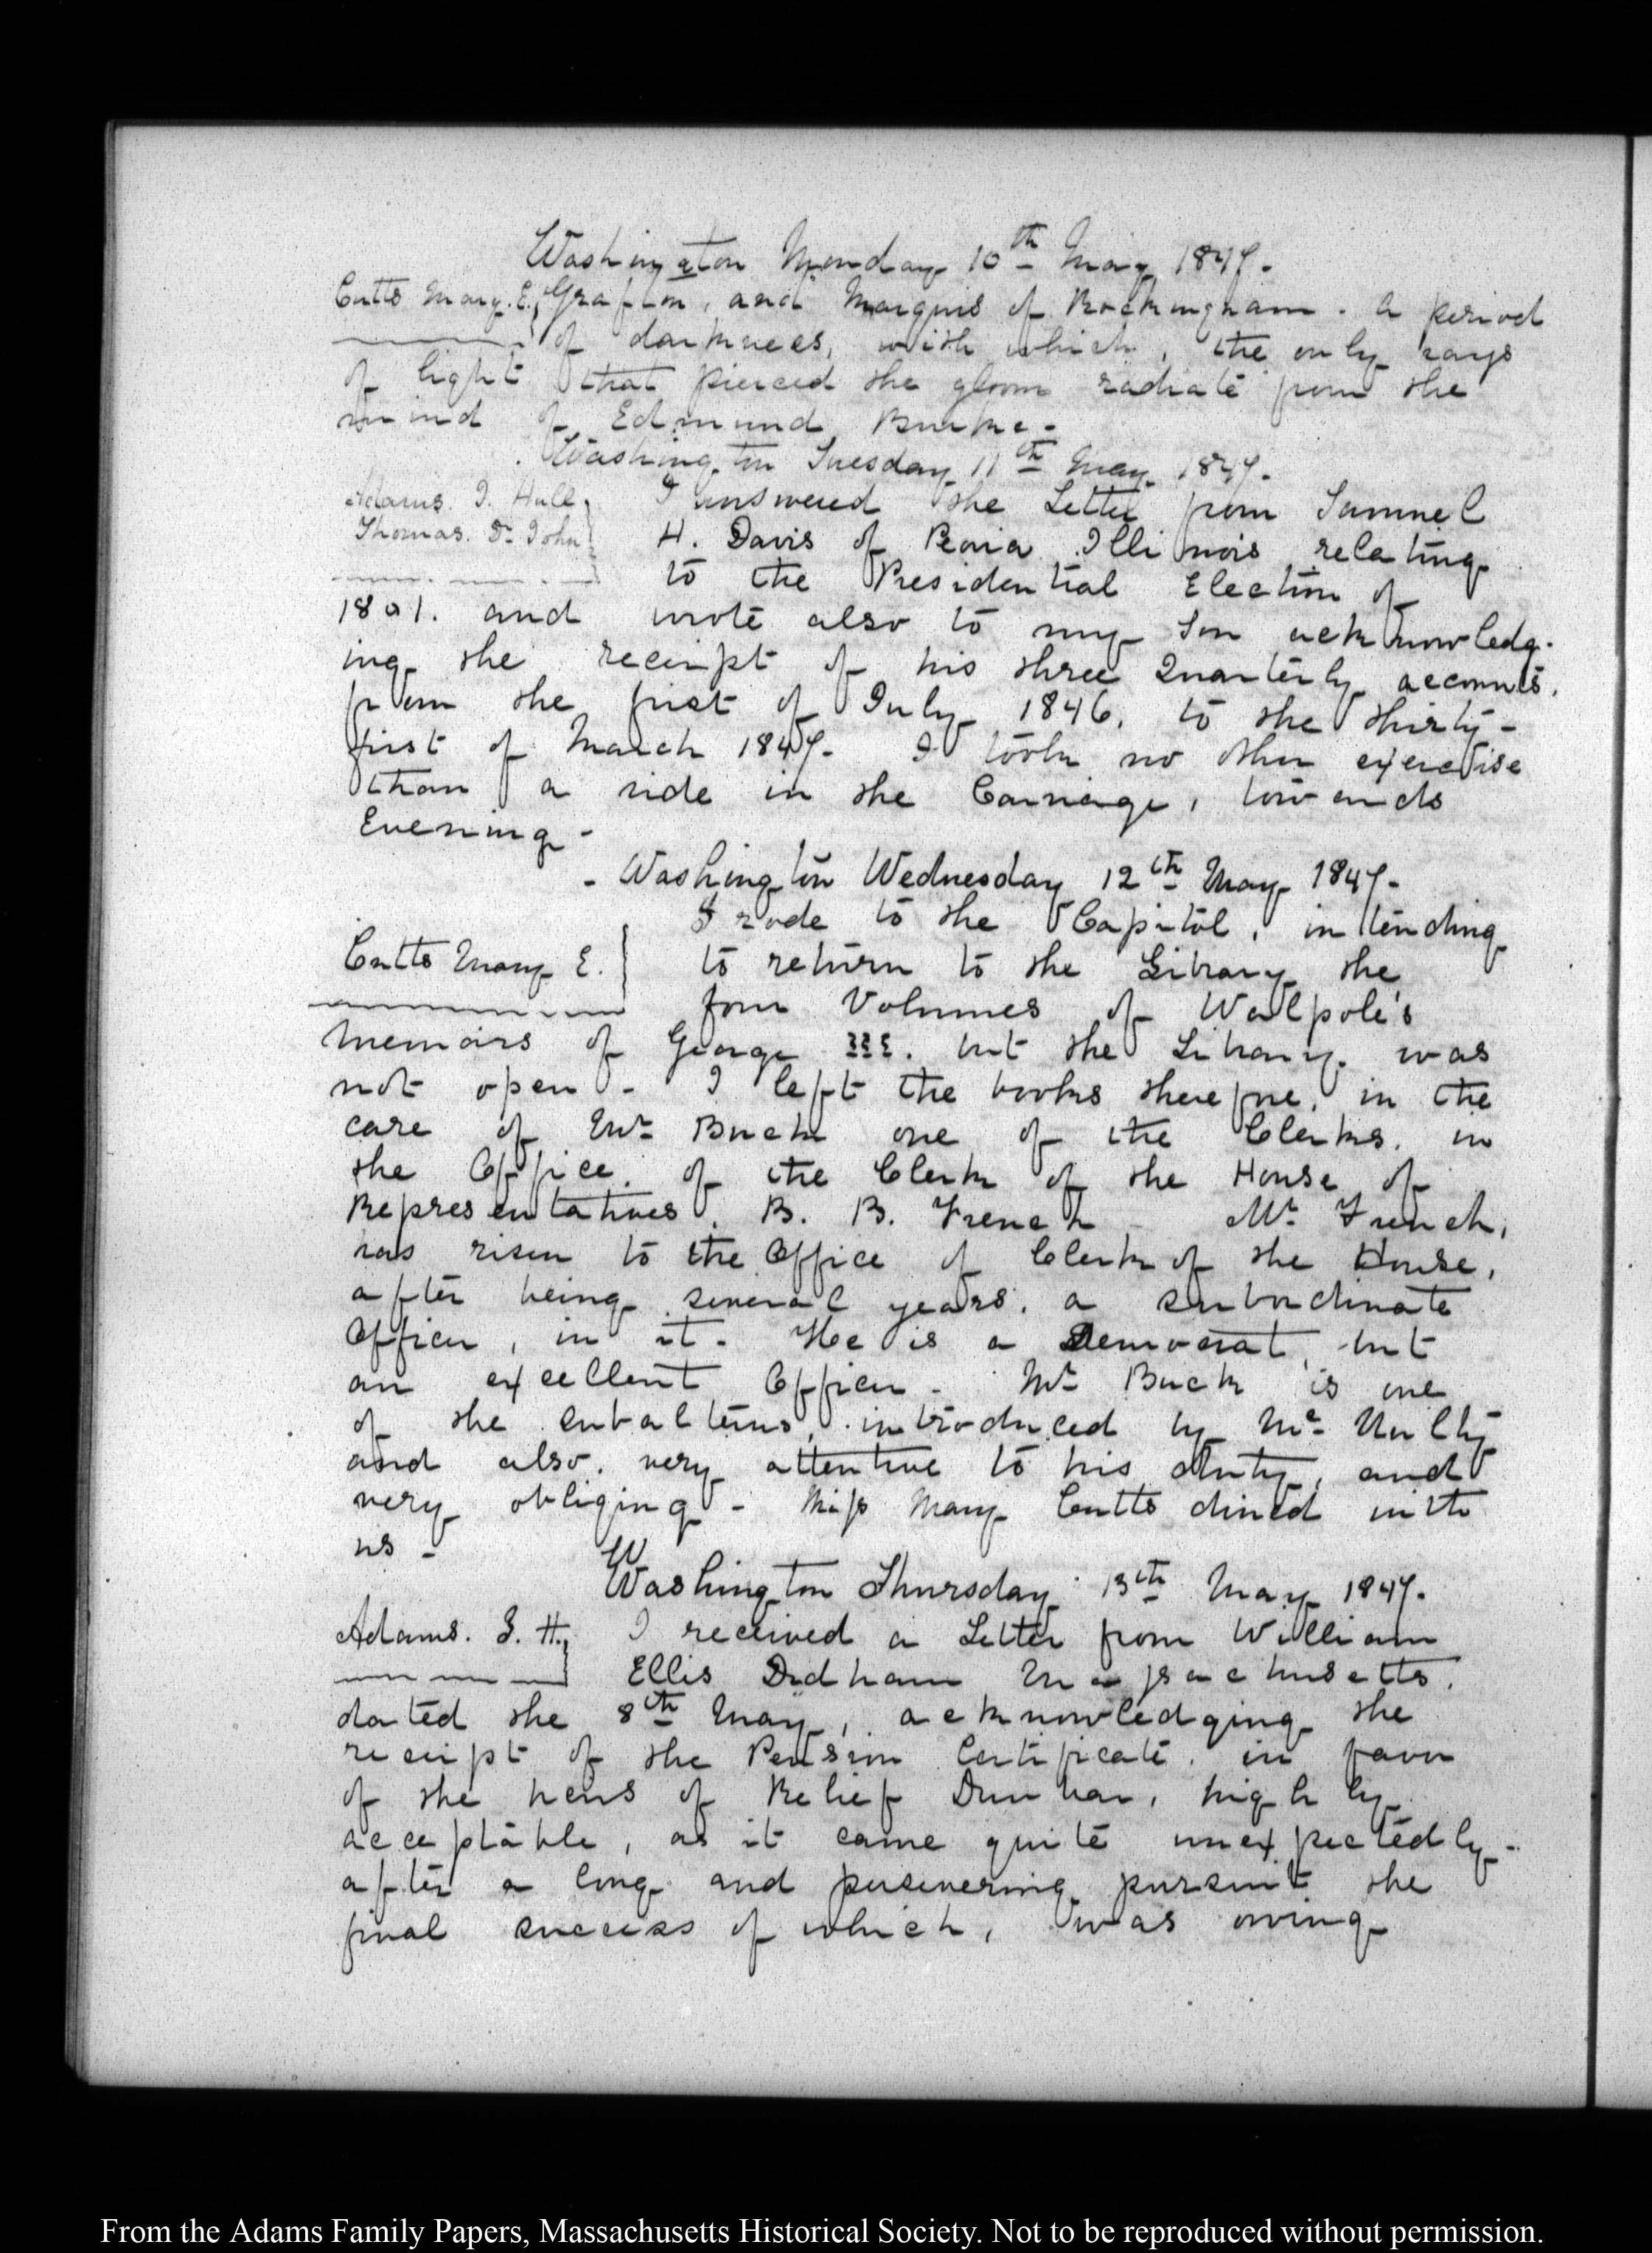 Washington Monday 10th May 1847.
Cutts Mary. E. Grafton, and Marquis of Rockingham. A period
of darkness, with which, the only rays
of light that pierced the gloom radiate from the
mind of Edmund Burke-
Washington Tuesday 11th May 1847.
Adams. I. Hull I answered the Letter from Samuel
Thomas. Dr. John H. Davis of Peoria Illinois relating
to the Presidential Election of
1801. and wrote also to my Son acknowledg-
ing the receipt of his three Quarterly accounts,
from the first of July 1846. to the thirty-
first of March 1847. I took no other exercise
than a ride in the Carriage, towards
Evening-
- Washington Wednesday 12th May 1847-
I rode to the Capitol, intending
Cutts Mary E. to return to the Library the
four Volumes of Walpole's
Memoirs of George III. but the Library was
not open- I left the books therefore, in the
care of Mr. Buck one of the Clerks. in
the Office. of the Clerk of the House of
Representatives. B. B. French - Mr. French,
has risen to the Office of Clerk of the House,
after being several years. a subordinate
Officer, in it. He is a Democrat, but
an excellent Officer- Mr. Buck is one
of the subalterns, introduced by Mc. Nulty
and also. very attentive to his duty, and
very obliging- Miss Mary Cutts dined with
us-
Washington Thursday 13th May 1847.
Adams. I. H. I received a Letter from William
Ellis Dedham Massachusetts.
dated the 8th May, acknowledging the
receipt of the Pension Certificate. in favor
of the heirs of Relief Dunbar, highly
acceptable, as it came quite unexpectedly-
after a long and persevering pursuit the
final success of which, was owing
From the Adams Family Papers, Massachusetts Historical Society. Not to be reproduced without permission.